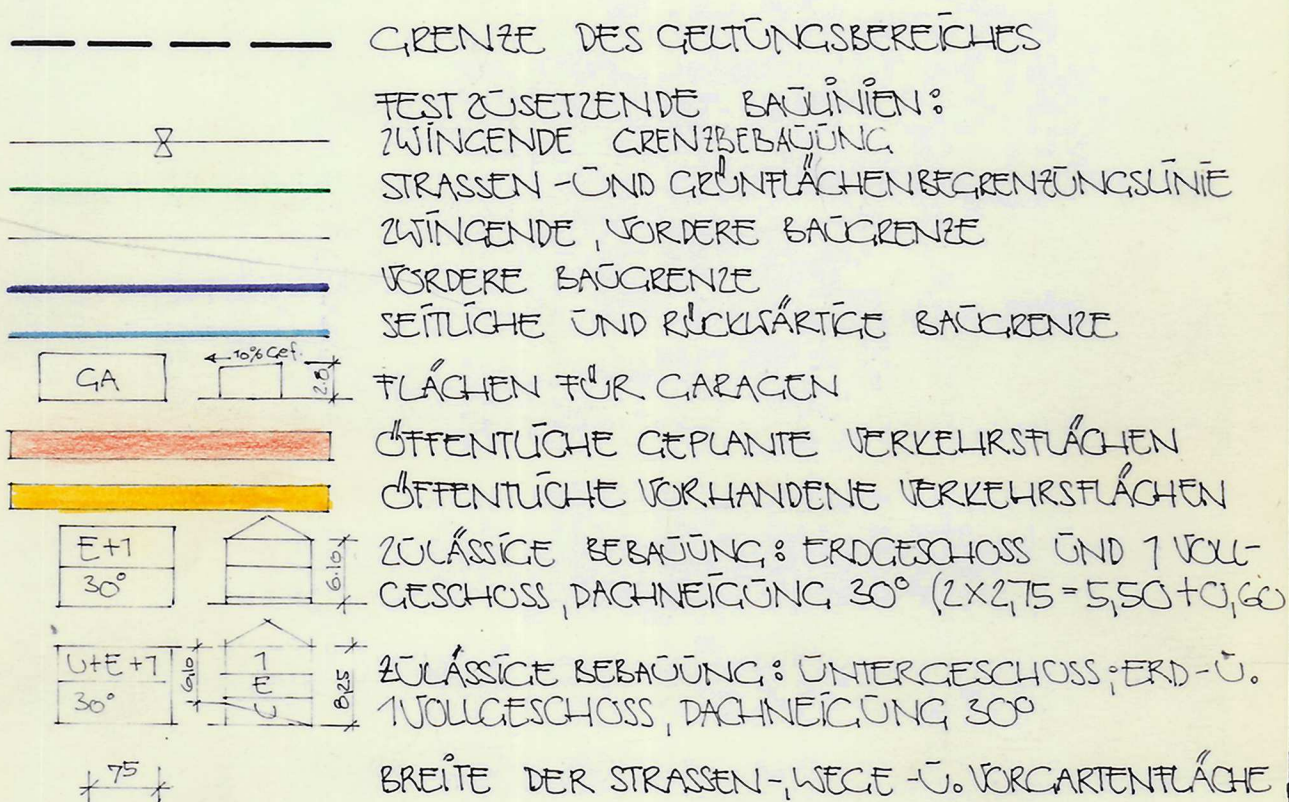 GRENZE DES GELTUNGSBEREICHES
FESTZUSETZENDE BAULINIEN:
ZWINGENDE GRENZBEBAUUNG
STRASSEN-UND GRÜNFLÄCHENBEGRENZUNGSLINIE
ZWINGENDE, VORDERE BAUGRENZE
VORDERE BAUGRENZE
SEITLICHE UND RÜCKWÄRTIGE BAUGRENZE
GA 10% Gef. 2.8 FLÄCHEN FÜR GARAGEN
ÖFFENTLICHE GEPLANTE VERKEHRSFLÄCHEN
ÖFFENTLICHE VORHANDENE VERKEHRSFLÄCHEN
E+1 ZULÄSSIGE BEBAUUNG: ERDGESCHOSS UND 1 VOLL-
30° 6.10 GESCHOSS, DACHNEIGUNG 30° (2x2,75=5,50+0,60
U+E+1 6,10 1 E U 8,25 ZULÄSSIGE BEBAUUNG: UNTERGESCHOSS; ERD-U.
30° 1 VOLLGESCHOSS, DACHNEIGUNG 30°
75 BREITE DER STRASSEN-, WEGE-U. VORGARTENFLÄCHE